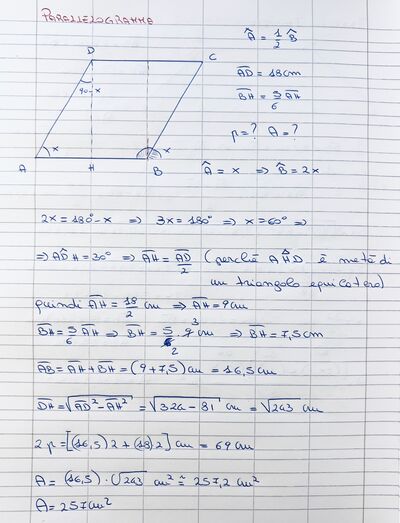 PARALLELOGRAMMA
Â = 1/2 B̂
D
C
AD = 18cm
90-x
BH = 5/6 AH
p=? A=?
x
x
A
H
B
Â = x ⇒ B̂ = 2x
2x = 180° - x ⇒ 3x = 180° ⇒ x = 60° ⇒
⇒ AD̂H = 30° ⇒ AH = AD/2 (perché AHD è metà di
un triangolo equilatero)
quindi AH = 18/2 cm ⇒ AH = 9cm
BH = 5/6 AH ⇒ BH = 5/6 · 9 cm ⇒ BH = 7,5 cm
3
2
AB = AH + BH = (9+7,5) cm = 16,5 cm
DH = √AD² - AH² = √324 - 81 cm = √243 cm
2p = [(16,5)2 + (18)2] cm = 69 cm
A = (16,5) · √243 cm² ≅ 257,2 cm²
A = 257 cm²